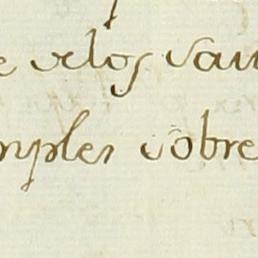 e velos van
mples sobre